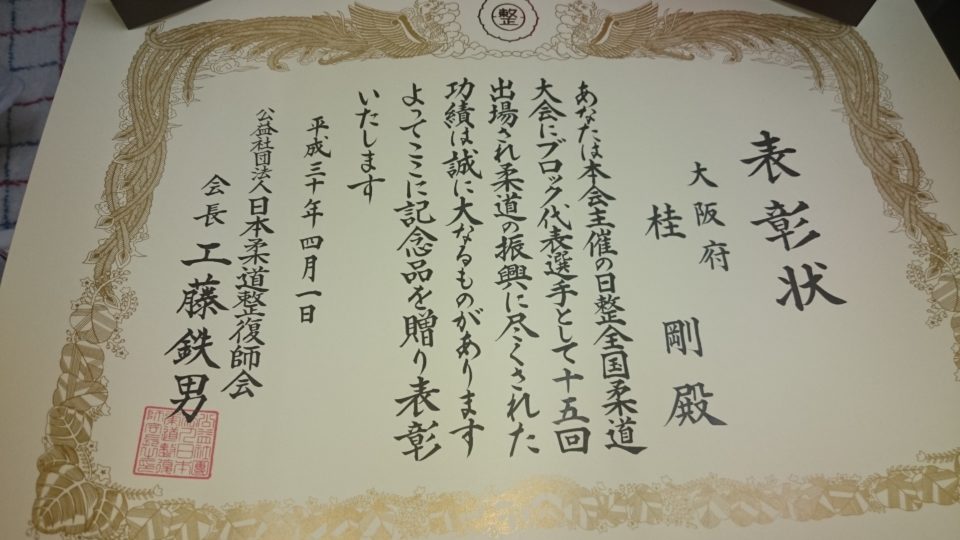 整
表彰状
大阪府
桂剛殿
あなたは本会主催の日整全国柔道
大会にブロック代表選手として十五回
出場され柔道の振興に尽くされた
功績は誠に大なるものがあります
よってここに記念品を贈り表彰
いたします
平成三十年四月一日
公益社団法人日本柔道整復師会
会長工藤鉄男